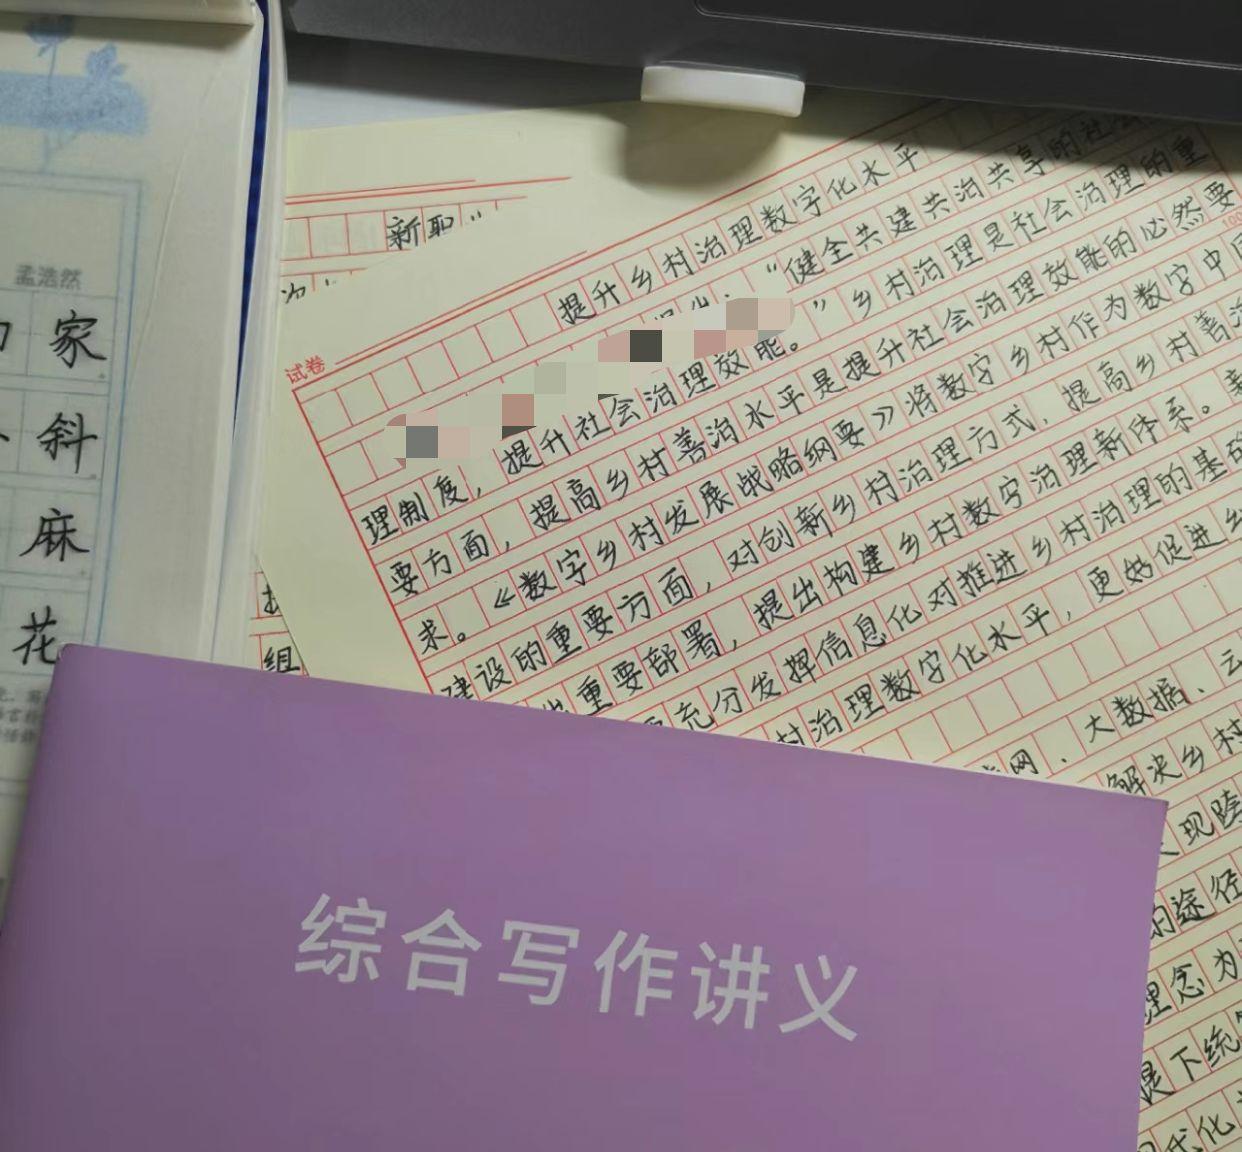 孟浩然
家
斜
麻
花
新职"
试卷
提升乡村治理数字化水平
"健全共建共治共享的社会
理制度，提升社会治理效能。"乡村治理是社会治理的重
要方面，提高乡村善治水平是提升社会治理效能的必然要
求。《数字乡村发展战略纲要》将数字乡村作为数字中国
建设的重要方面，对创新乡村治理方式，提高乡村善治
重要部署，提出构建乡村数字治理新体系。
充分发挥信息化对推进乡村治理的基础
村治理数字化水平，更好促进乡
网、大数据、云
解决乡村
现跨
的途径
理念为
提下统
代化
组
100
综合写作讲义